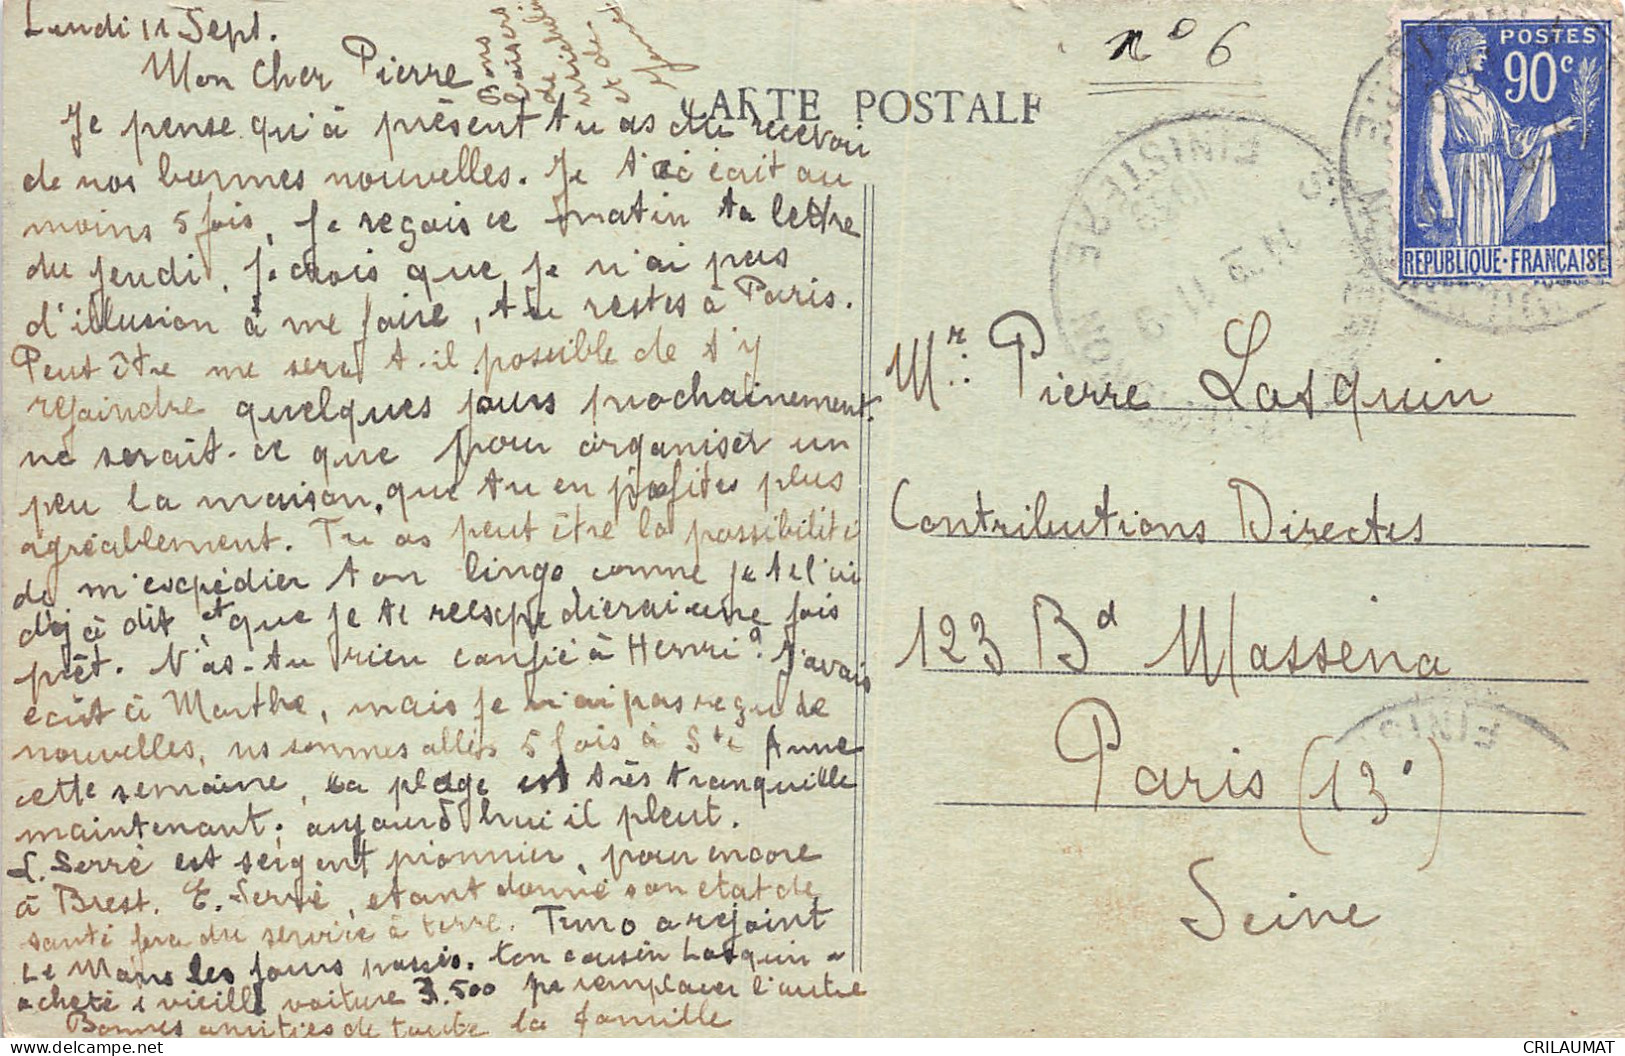 Lundi 11 Sept.
Mon Cher Pierre
Je pense qu'à présent tu as du recevoir
de nos bonnes nouvelles. Je t'ai écrit au
moins 5 fois, Je reçois ce matin ta lettre
du Jeudi. Je crois que je n'ai pas
d'illusion à me faire, tu restes à Paris.
Peut être me sera t-il possible de t'y
rejoindre quelques jours prochainement
ne serait-ce que pour organiser un
peu la maison, que tu en profites plus
agréablement. Tu as peut être la possibilité
de m'expédier ton linge comme je te l'ai
déjà dit et que je te reexpedierai une fois
prêt. N'as-tu rien confié à Henri? J'avais
écrit à Marthe, mais je n'ai pas reçu de
nouvelles, ns sommes allés 5 fois à Ste Anne
cette semaine, la plage est très tranquille
maintenant; aujourd'hui il pleut.
L. Serré est sergent pionnier, pour encore
à Brest. E. Serré, etant donné son etat de
santé fera du service à terre. Timo a rejoint
Le Mans les jours passés. Ton cousin Lasquin a
acheté 1 vieille voiture 3.500 pr remplacer l'autre
Bonnes amitiés de toute la famille
Bons
baisers
de
Michel
et de
n° 6
CARTE POSTALE
POSTES
90c
REPUBLIQUE-FRANÇAISE
FINISTERE
11-9
FINIS
Mr. Pierre Lasquin
Contributions Directes
123 Bd Massena
Paris (13°)
Seine
CRILAUMAT